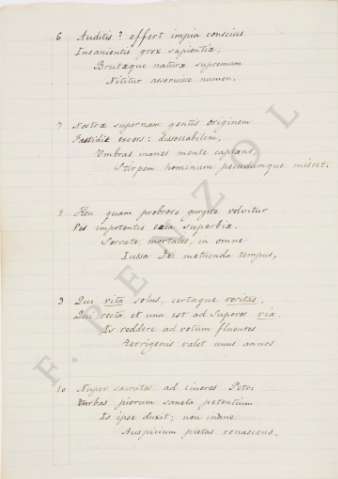 6 Auditis? effert impia conscius
Insanientis grex sapientiæ;
Brutæque naturæ supremum
Nititur asseruisse numen.
7 Nostræ supernam gentis originem
Fastidit excors: dissociabilem,
Umbras inanes mente captans,
Stirpem hominum pecudumque miscet.
8 Heu quam probroso gurgite volvitur
Vis impotentis cæca superbiæ.
Servate, mortales, in omne
Iussa Dei metuenda tempus,
9 Qui vita solus, certaque veritas,
Qui recta et una est ad Superos via.
Is reddere ad votum fluentes
Terrigenis valet unus annos
10 Nuper sacratos ad cineres Petri
Turbas piorum sancta petentium
Is ipse duxit; non inane
Auspicium pietas renascens.
F. PENZOL